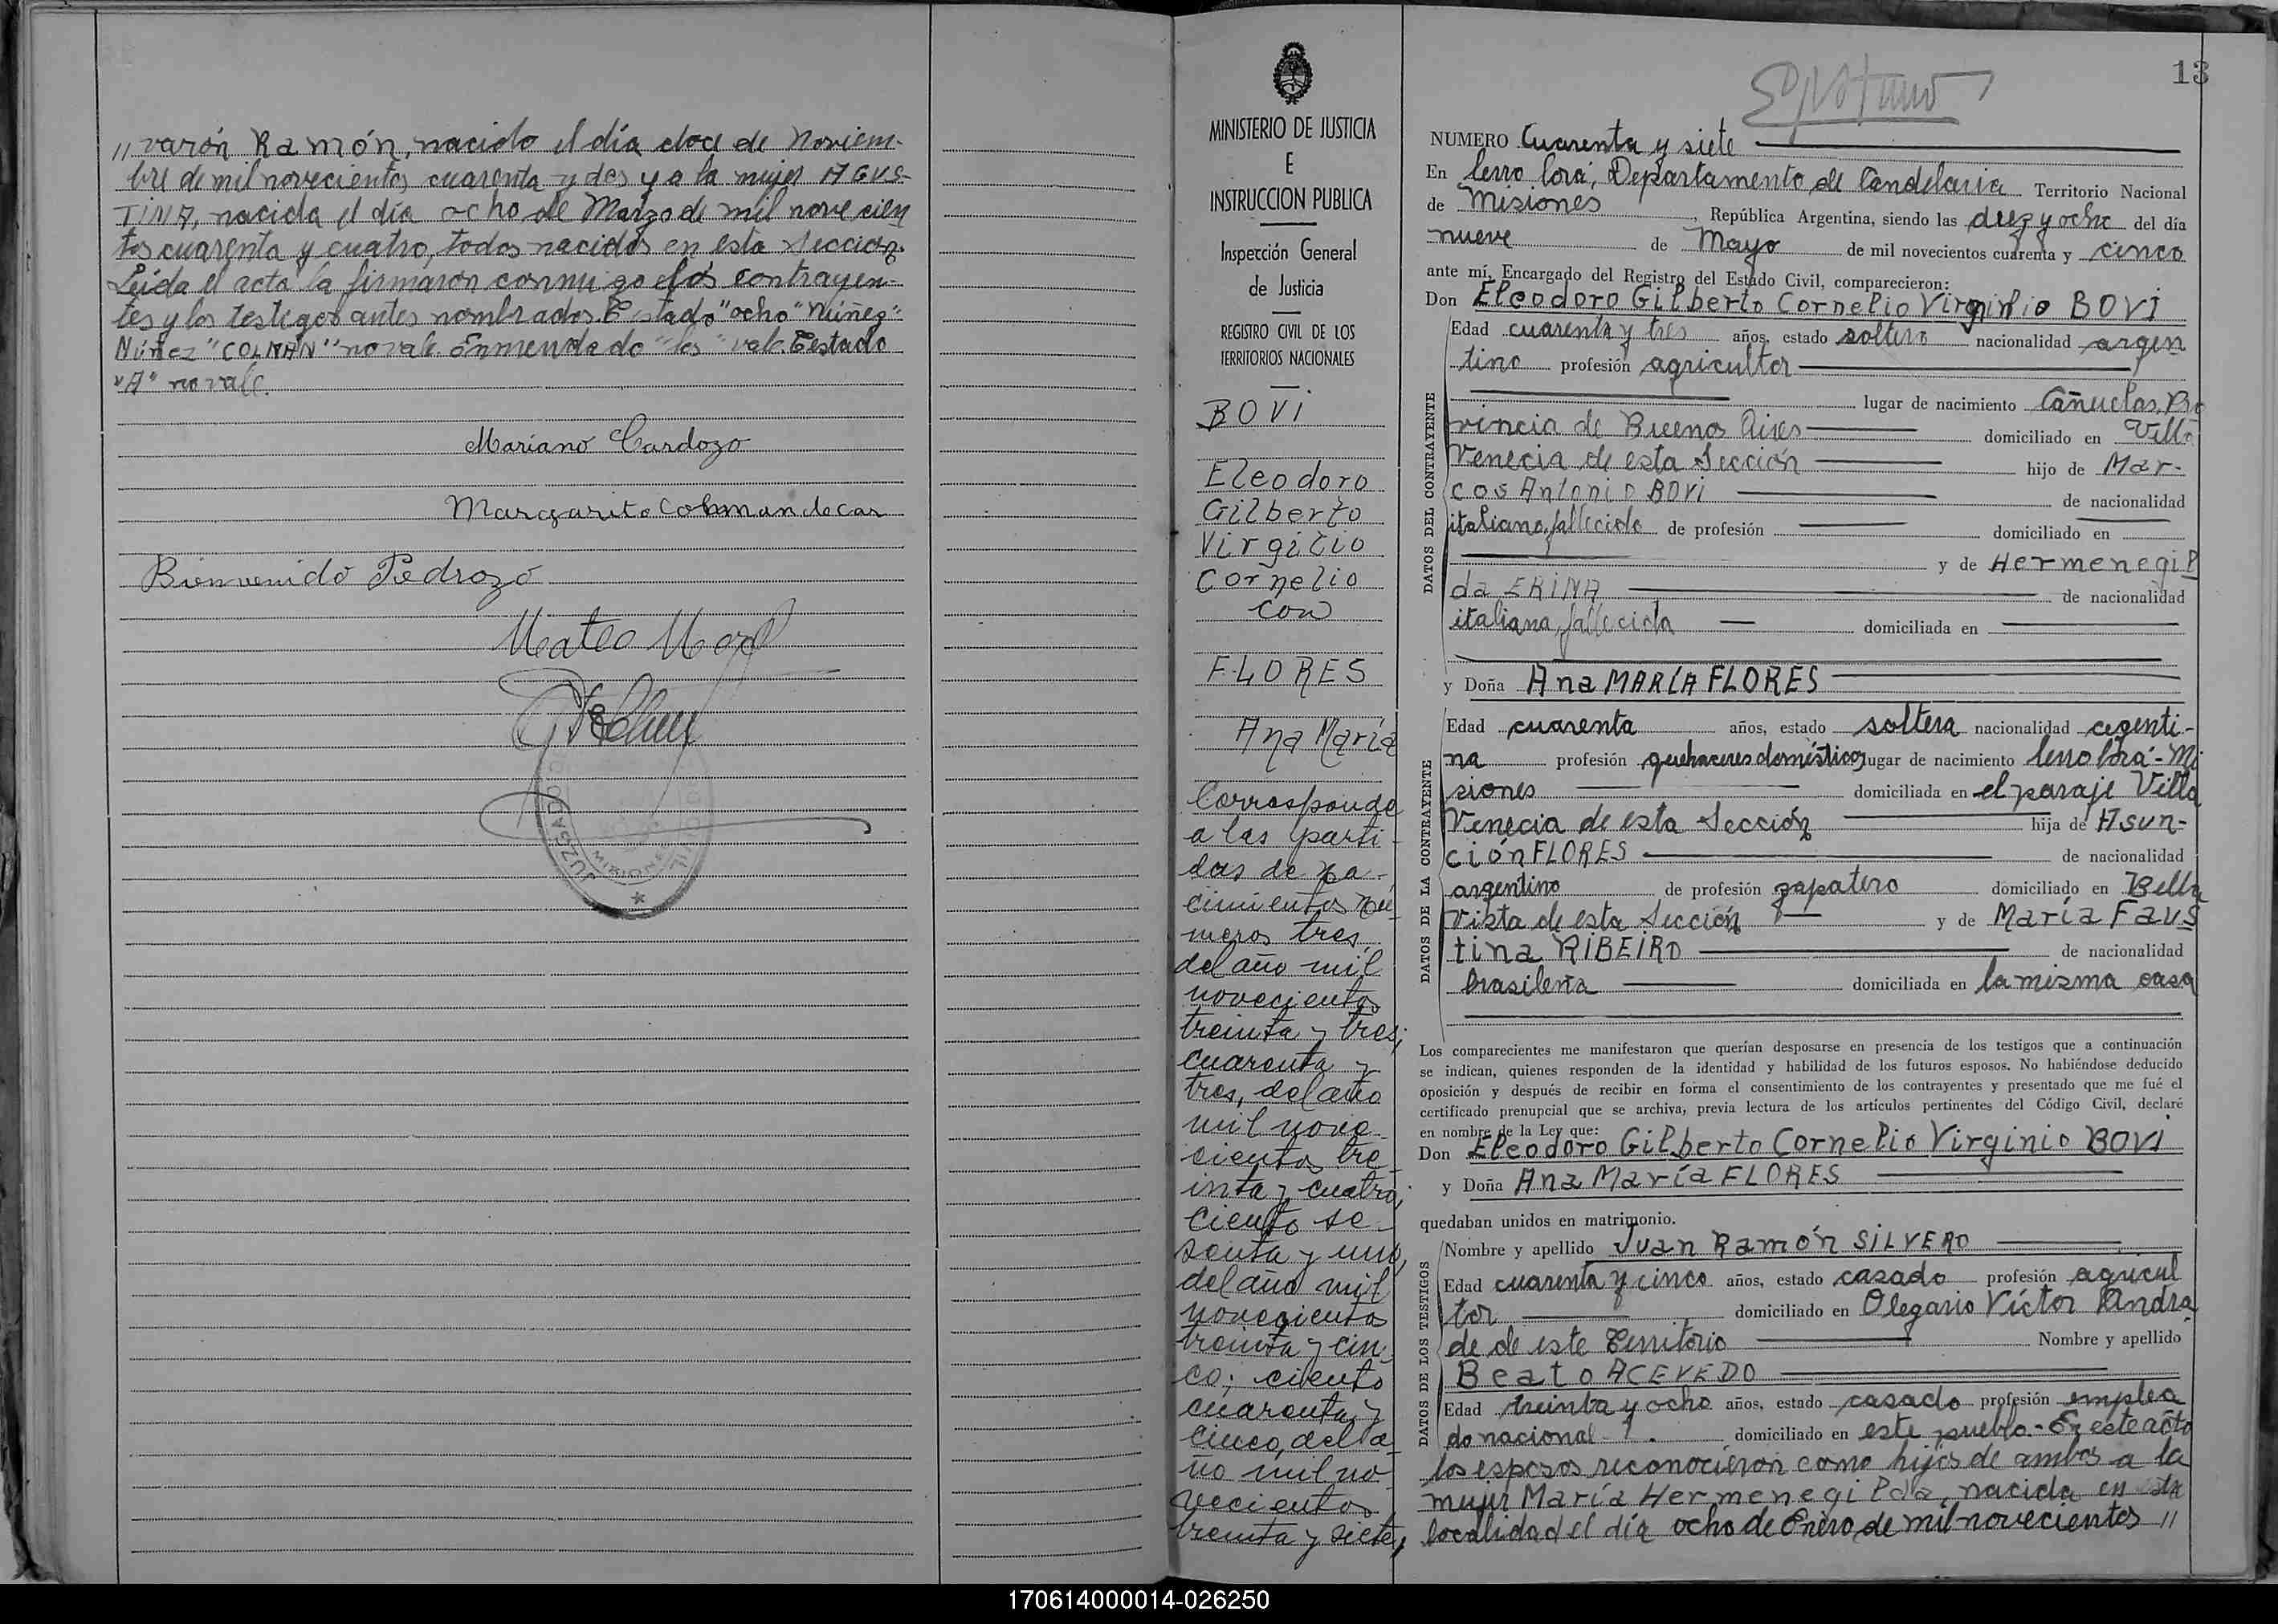 // varón Ramón, nacido el día doce de Noviem-
bre de mil novecientos cuarenta y dos y a la mujer AGUS-
TINA, nacida el día ocho de Marzo de mil novecien
tos cuarenta y cuatro, todos nacidos en esta Sección.
Leída el acta la firmaron conmigo los contrayen-
tes y los testigos antes nombrados. Testado "ocho" "Núñez"
Núñez "COLMAN" no vale. Enmendado "los" vale. Testado
"A" no vale.
Mariano Cardozo
Margarita Colman de Car
Bienvenido Pedrozo
Mateo
MISIONES
MINISTERIO DE JUSTICIA
E
INSTRUCCION PUBLICA
Inspección General
de Justicia
REGISTRO CIVIL DE LOS
TERRITORIOS NACIONALES
BOVI
Eleodoro
Gilberto
Virgilio
Cornelio
con
FLORES
Ana María
Corresponde
a las parti-
das de na-
cimientos nú-
meros tres,
del año mil
novecientos
treinta y tres;
cuarenta y
tres, del año
mil nove-
cientos tre-
inta y cuatro;
ciento se-
senta y uno,
del año mil
novecientos
treinta y cin-
co; ciento
cuarenta y
cinco, del a-
ño mil no-
vecientos
treinta y siete,
13
NUMERO Cuarenta y siete
En Cerro Corá, Departamento de Candelaria Territorio Nacional
de Misiones, República Argentina, siendo las diez y ocho del día
nueve de Mayo de mil novecientos cuarenta y cinco
ante mí, Encargado del Registro del Estado Civil, comparecieron:
Don Eleodoro Gilberto Cornelio Virginio BOVI
DATOS DEL CONTRAYENTE
Edad cuarenta y tres años, estado soltero nacionalidad argen
tino profesión agricultor
lugar de nacimiento Cañuelas, Pro
vincia de Buenos Aires domiciliado en Villa
Venecia de esta Sección hijo de Mar-
cos Antonio BOVI de nacionalidad
italiano, fallecido de profesión domiciliado en
y de Hermenegil
da ERINA de nacionalidad
italiana, fallecida domiciliada en
y Doña Ana MARÍA FLORES
DATOS DE LA CONTRAYENTE
Edad cuarenta años, estado soltera nacionalidad argenti-
na profesión quehaceres domésticos lugar de nacimiento Cerro Corá - Mi
siones domiciliada en el paraje Villa
Venecia de esta Sección hija de Asun-
ción FLORES de nacionalidad
argentino de profesión zapatero domiciliado en Bella
Vista de esta Sección y de María Faus
tina RIBEIRO de nacionalidad
brasileña domiciliada en la misma casa
Los comparecientes me manifestaron que querían desposarse en presencia de los testigos que a continuación
se indican, quienes responden de la identidad y habilidad de los futuros esposos. No habiéndose deducido
oposición y después de recibir en forma el consentimiento de los contrayentes y presentado que me fué el
certificado prenupcial que se archiva, previa lectura de los artículos pertinentes del Código Civil, declaré
en nombre de la Ley que:
Don Eleodoro Gilberto Cornelio Virginio BOVI
y Doña Ana María FLORES
quedaban unidos en matrimonio.
DATOS DE LOS TESTIGOS
Nombre y apellido Juan Ramón SILVERO
Edad cuarenta y cinco años, estado casado profesión agricul
tor domiciliado en Olegario Víctor Andra
de de este Territorio Nombre y apellido
Beato ACEVEDO
Edad treinta y ocho años, estado casado profesión emplea
do nacional domiciliado en este pueblo.- En este acto
los esposos reconocieron como hijos de ambos a la
mujer María Hermenegilda, nacida en esta
localidad el día ocho de Enero de mil novecientos //
170614000014-026250